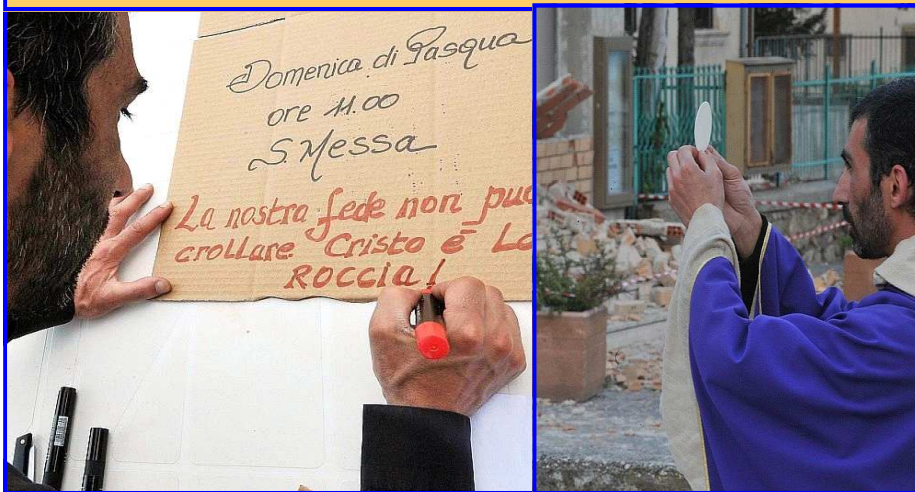 Domenica di Pasqua
ore 11.00
S. Messa
La nostra fede non può
crollare Cristo è La
ROCCIA!